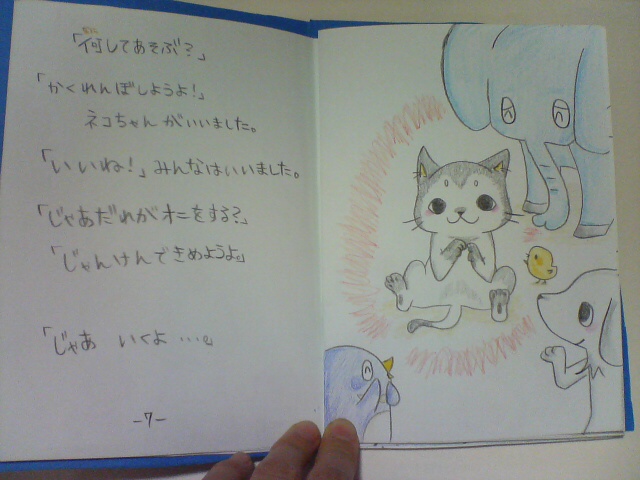 「何してあそぶ？」
「かくれんぼしようよ！」
ネコちゃんがいいました。
「いいね！」みんなはいいました。
「じゃあだれがオニをする？」
「じゃんけんできめようよ」
「じゃあ いくよ …。
-7-